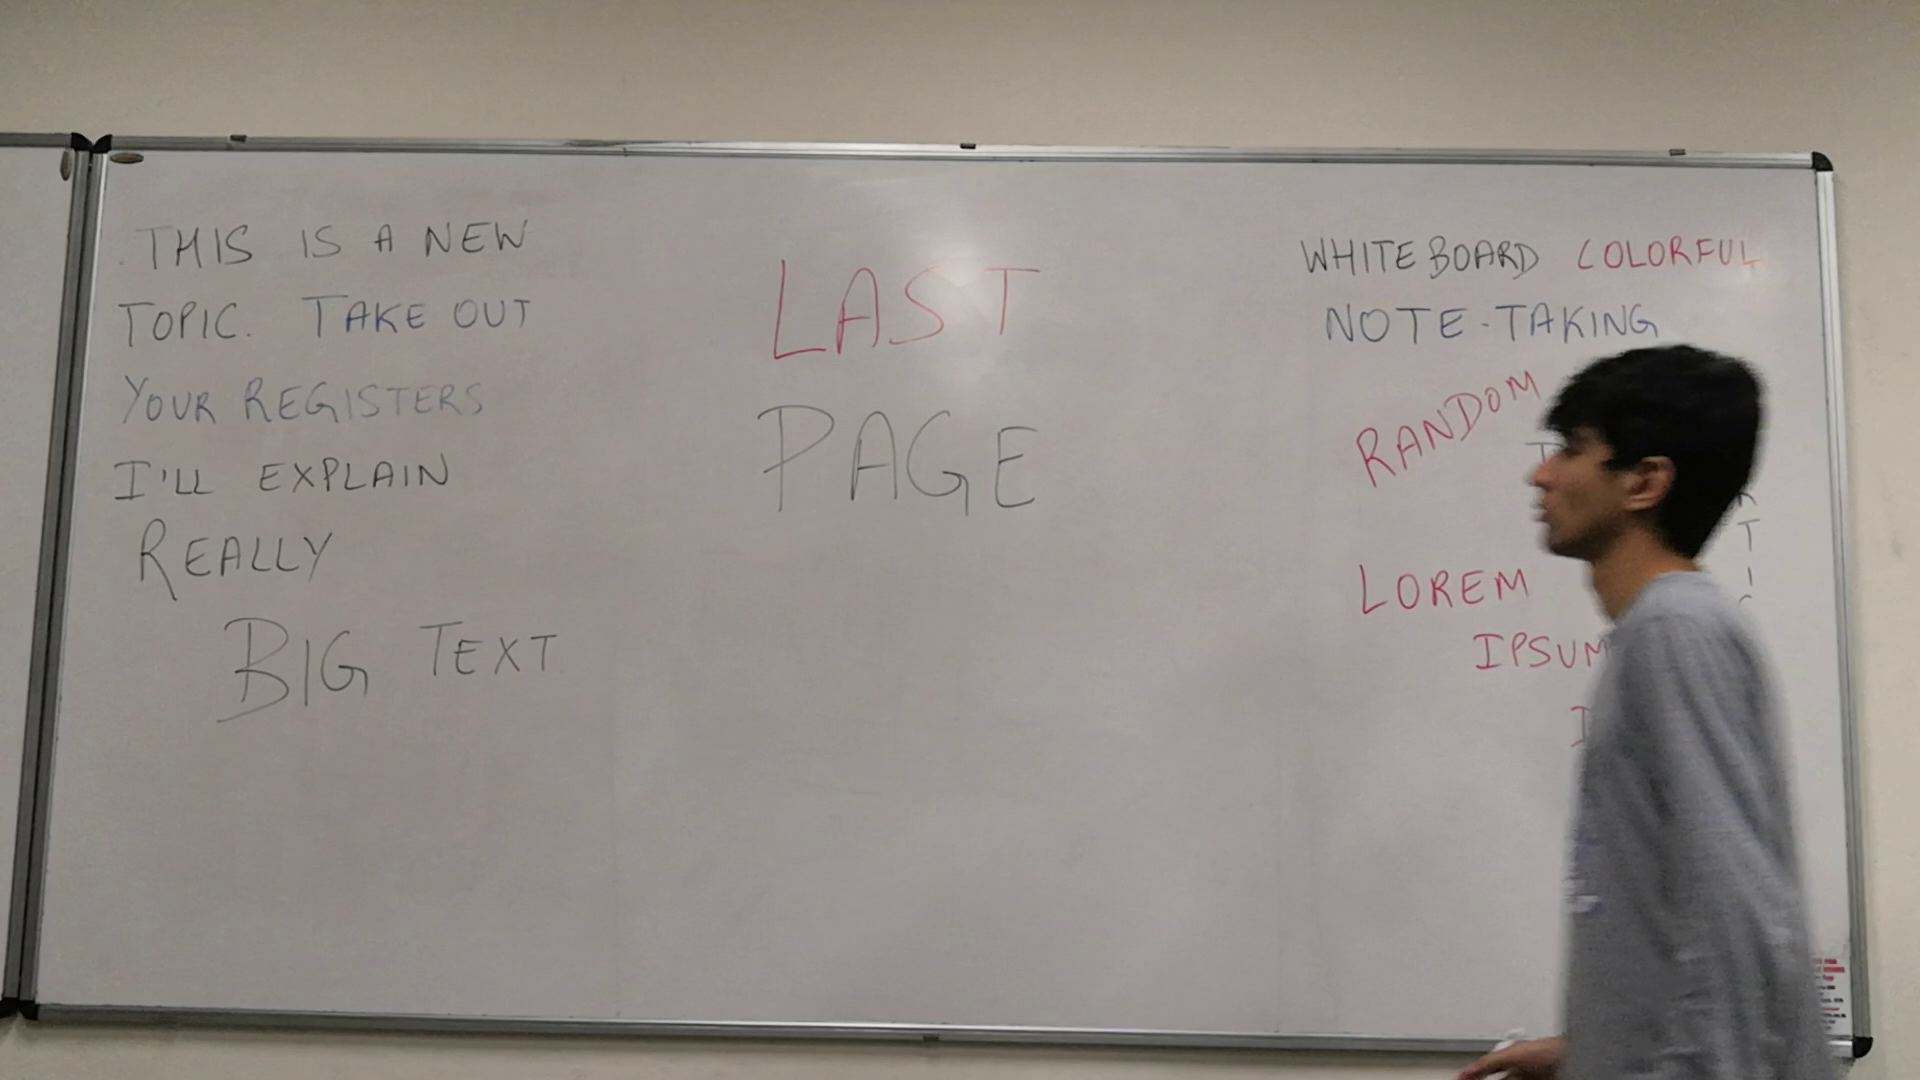 THIS IS A NEW
TOPIC. TAKE OUT
YOUR REGISTERS
I'LL EXPLAIN
REALLY
BIG TEXT
LAST
PAGE
WHITEBOARD COLORFUL
NOTE-TAKING
RANDOM
LOREM
IPSUM